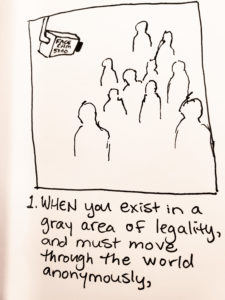 FACE
CAM
5200
1. WHEN you exist in a
gray area of legality,
and must move
through the world
anonymously,